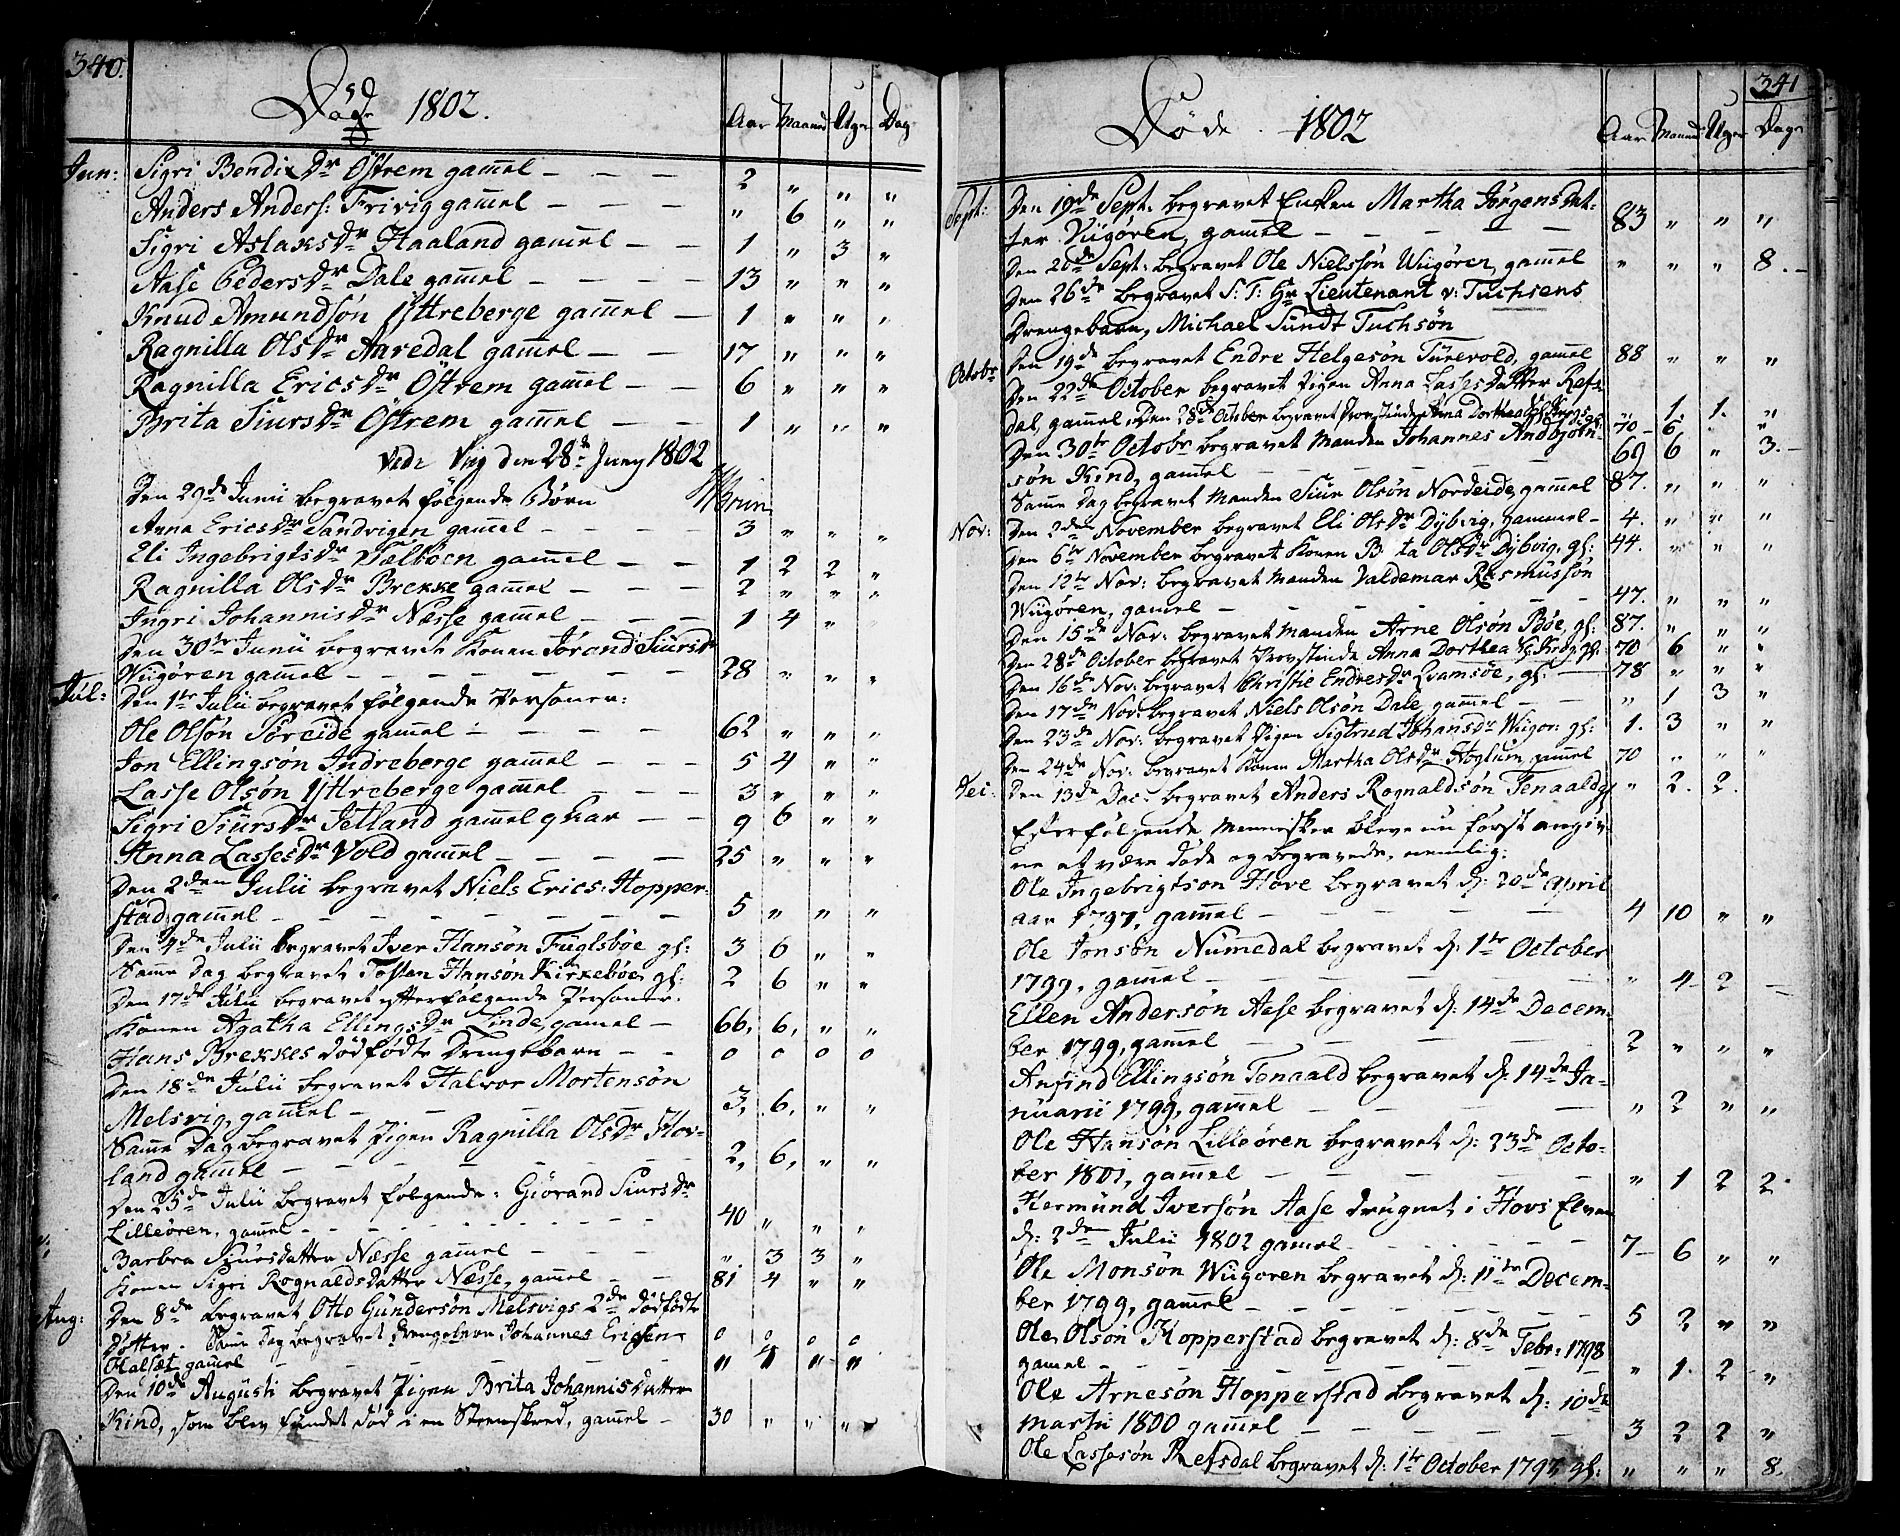 340.
Døde 1802.
Aar Maaned Uger Dag
Jun: Sigri Bendix Dr Östrem gam̅el — — — 2 " " "
Anders Anders: Frivig gam̅el — — — " 6 " "
Sigri Aslaks Dr Haaland gam̅el — — 1 " 3 "
Aase Peders Dr Dale gam̅el — — — — 13 " " "
Knud Amundsøn Ystreberge gam̅el — 1 " " "
Ragnilla Ols Dr Aaredal gam̅el — — 17 " " "
Ragnilla Erics Dr Östrem gam̅el — — 6 " " "
Brita Siurs Dr Östrem gam̅el — — 1 " " "
Vedr Viig den 28de Juny 1802
Den 29de Junii begravet følgende Børn
Anna Erics Dr Sandvigen gam̅el — — — 3 " " "
Eli Ingebrigts Dr Tælbøen gam̅el — — 1 2 2 "
Ragnilla Ols Dr Brekke gam̅el — — — 2 " " "
Ingri Johannis Dr Næsse gam̅el — — — 1 4 " "
Den 30te Junii begravet Konen Jørand Siurs Dr
Wiigøren gam̅el — — — — — — — 28 " " "
Jul: Den 1te Julii begravet følgende Personer:
Ole Olsøn Søreide gam̅el — — — — 62 " " "
Jon Ellingsøn Indreberge gam̅el — — — 5 4 " "
Lasse Olsøn Ystreberge gam̅el — — — 3 " " "
Sigri Siurs Dr Jetland gam̅el — — 9 6 " "
Anna Lasses Dr Vold gam̅el — — — — 25 " " "
Den 2den Julii begravet Niels Erics: Hopper-
stad gam̅el — — — — — — — — 5 " " "
Den 4de Julii begravet Iver Hansøn Fuglsbøe gl: 3 6 " "
Sam̅e Dag begravet Tosten Hansøn Kirkebøe, gl: 2 6 " "
Den 17de Julii begravet efterfølgende Personer:
Konen Agatha Ellings Dr Linde, gam̅el — 66, 6, " "
Hans Brekkes dödfødte Drengebarn — — 0 0 0 0
Den 18de Julii begravet Halvor Mortensøn
Melsvig, gam̅el — — — — — — 3, 6, " "
Sam̅e Dag begravet Pigen Ragnilla Ols Dr Hov-
land gam̅el — — — — — — — 2, 6, " "
Den 25de Julii begravet følgende: Giörand Siurs Dr
Lilleøren, gam̅el — — — — — — — 40 " " "
Barbra Siursdatter Næsse gam̅el — — — " 3 3 "
Konen Sigri Rognaldsdatter Næsse, gam̅el — — 81 4 " "
Aug: Den 8de begravet Otto Gundersøn Melsvigs 2de dödfödte
Døttre. Sam̅e Dag begravet Drengebarn Johannes Ericsen 0 0 0 0
Olalsæt gam̅el — — — — — — " 4 " "
Den 10de Augusti begravet Pigen Brita Johannisdatter
Kind, som blev fundet död i en Steenskred, gam̅el — 30 " " "
341
Døde. 1802
Aar Maaned Uger Dage
Sept: Den 19de Sept. begravet Enken Martha Jørgens Dat-
ter Viigøren, gam̅el — — — — — 83 " " "
Den 20de Sept: begravet Ole Nielssön Wiigören, gam̅el " " " 8.
Den 26de begravet S: T: Hr Lieutenant v: Tuchsens
Drengebarn, Michael Sundt Tuchsøn
Octobr Den 19de begravet Endre Helgesøn Türevold, gam̅el 88 " " "
Den 22de October begravet Pigen Anna Lassesdatter Refs-
dal, gam̅el, Den 28de October begravet Provstinde Anna Dorthea " 1. 1. "
70 — 6
Den 30te Octobr begravet Manden Johannes Andbjörn-
søn Kind, gam̅el — — — — — — 69 6 " 3.
Sam̅e Dag begravet Manden Siur Olsøn Nordeide, gam̅el 87. " " "
Nov: Den 2den November begravet Eli Ols Dr Dybvig, gammel — 4. " " "
Den 6te November begravet Konen Brita Ols Dr Dybvig, gl: 44. " " "
Den 12te Nov: begravet Manden Valdemar Rasmussøn
Wiigören, gam̅el — — — — — — 47. " " "
Den 15de Nov: begravet Manden Arne Olsøn Bøe, gl: 87. " " "
Den 28de October begravet Provstinde Anna Dorthea gl: 70 6 " "
Den 16de Nov: begravet Christie Endres Dr Qvamsøe, gl: — 78 " " "
Den 17de Nov: begravet Niels Olsøn Dale, gam̅el — — " 1 3 "
Den 23de Nov: begravet Pigen Sigtrud Johans Dr Wiigør: gl: 1. 3 " "
Den 24de Nov: begravet Konen Martha Ols Dr Höglum, gam̅el 70 " " "
Dec: Den 13de Dec: begravet Anders Rognaldsøn Tenaald gl " 2. 2.
Efterfølgende Mennesker bleve nu først angiv-
ne at være døde og begravede, nemlig:
Ole Ingebrigtsøn Hove begravet d: 20de April
aar 1797, gam̅el — — — — 4 10 " "
Ole Jonsøn Numedal begravet d: 1te October
1799, gam̅el — — — — — — " 4 2 —
Ellen Andersøn Aase begravet d: 14de Decem-
ber 1799, gam̅el — — — — 2 " " "
Anfind Ellingsøn Tenaald begravet d: 14de Ja-
nuarii 1799, gam̅el — — — — " 2 " "
Ole Hansøn Lilleøren begravet d: 23de Octo-
ber 1801, gam̅el — — — — — " 1 2 2.
Hermund Iversøn Aase drugnet i Hovs Elven
d: 2de Julii 1802 gam̅el — — — — 7 — 6 " "
Ole Monsøn Wiigøren begravet d: 11te Decem-
ber 1799, gam̅el — — — — — — 5 2 " "
Ole Olsøn Hopperstad begravet d: 8de Febr: 1798
gam̅el — — — — — — " 1. 2 "
Ole Arnesøn Hopperstad begravet d: 10de
Martii 1800 gam̅el — — — — — 3 2 2 "
Ole Lassesøn Refsdal begravet d: 1te October 1797, gl: " " " 8.